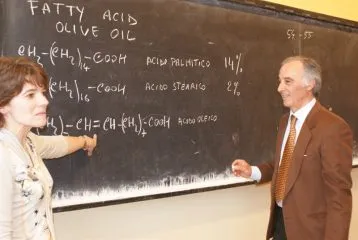 FATTY ACID
OLIVE OIL
54 - 55
CH3-(CH2)14-COOH ACIDO PALMITICO 14%
-(CH2)16-COOH ACIDO STEARICO 2%
)-CH=CH-(CH2)7-COOH ACIDO OLEICO